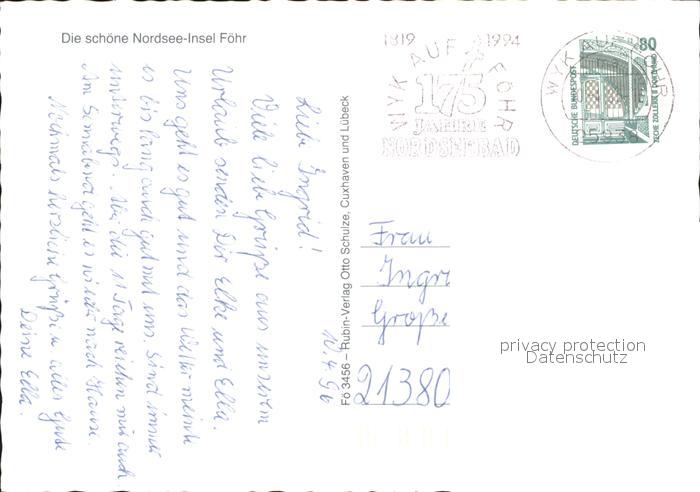 Die schöne Nordsee-Insel Föhr
Liebe Ingrid!
Viele liebe Grüße aus unserem
Urlaub senden Dir Elke und Ella.
Uns geht es gut und das Wetter meinte
es bis lang auch gut mit uns. Sind immer
unterwegs. Die 11 Tage reichen mir auch.
Am Sonnabend geht es wieder nach Hause.
Nochmals herzliche Grüße alles Gute
Deine Ella.
10.4.96
Fö 3456 – Rubin-Verlag Otto Schulze, Cuxhaven und Lübeck
1819 1994
WYK AUF FÖHR
175
JAHRE
NORDSEEBAD
WYK AUF FÖHR
80
DEUTSCHE BUNDESPOST
ZECHE ZOLLERN II DORTMUND
Frau
Ingr
Große
21380
privacy protection
Datenschutz